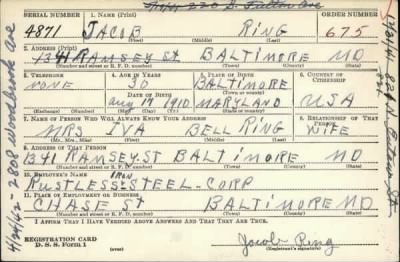 SERIAL NUMBER 1. NAME (Print) ORDER NUMBER
4871 JACOB RING 675
(First) (Middle) (Last)
2. ADDRESS (Print)
1341 RAMSEY ST BALTIMORE MD
(Number and street or R. F. D. number) (Town) (County) (State)
3. TELEPHONE 4. AGE IN YEARS 5. PLACE OF BIRTH 6. COUNTRY OF CITIZENSHIP
NONE 30 BALTIMORE
DATE OF BIRTH (Town or county)
Aug 17 1910 MARYLAND USA
(Exchange) (Number) (Mo.) (Day) (Yr.) (State or country)
7. NAME OF PERSON WHO WILL ALWAYS KNOW YOUR ADDRESS 8. RELATIONSHIP OF THAT PERSON
MRS IVA BELL RING WIFE
(Mr., Mrs., Miss) (First) (Middle) (Last)
9. ADDRESS OF THAT PERSON
1341 RAMSEY ST BALTIMORE MD
(Number and street or R. F. D. number) (Town) (County) (State)
10. EMPLOYER'S NAME IRON
RUSTLESS STEEL CORP
11. PLACE OF EMPLOYMENT OR BUSINESS
CHASE ST BALTIMORE MD
(Number and street or R. F. D. number) (Town) (County) (State)
I AFFIRM THAT I HAVE VERIFIED ABOVE ANSWERS AND THAT THEY ARE TRUE.
REGISTRATION CARD
D. S. S. Form 1 (over) Jacob Ring
(Registrant's signature)
4/24/42 - 2808 Woodbrook Ave